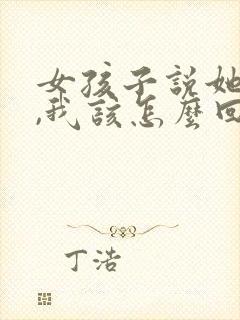 女孩子說她
,我該怎麼回
丁浩